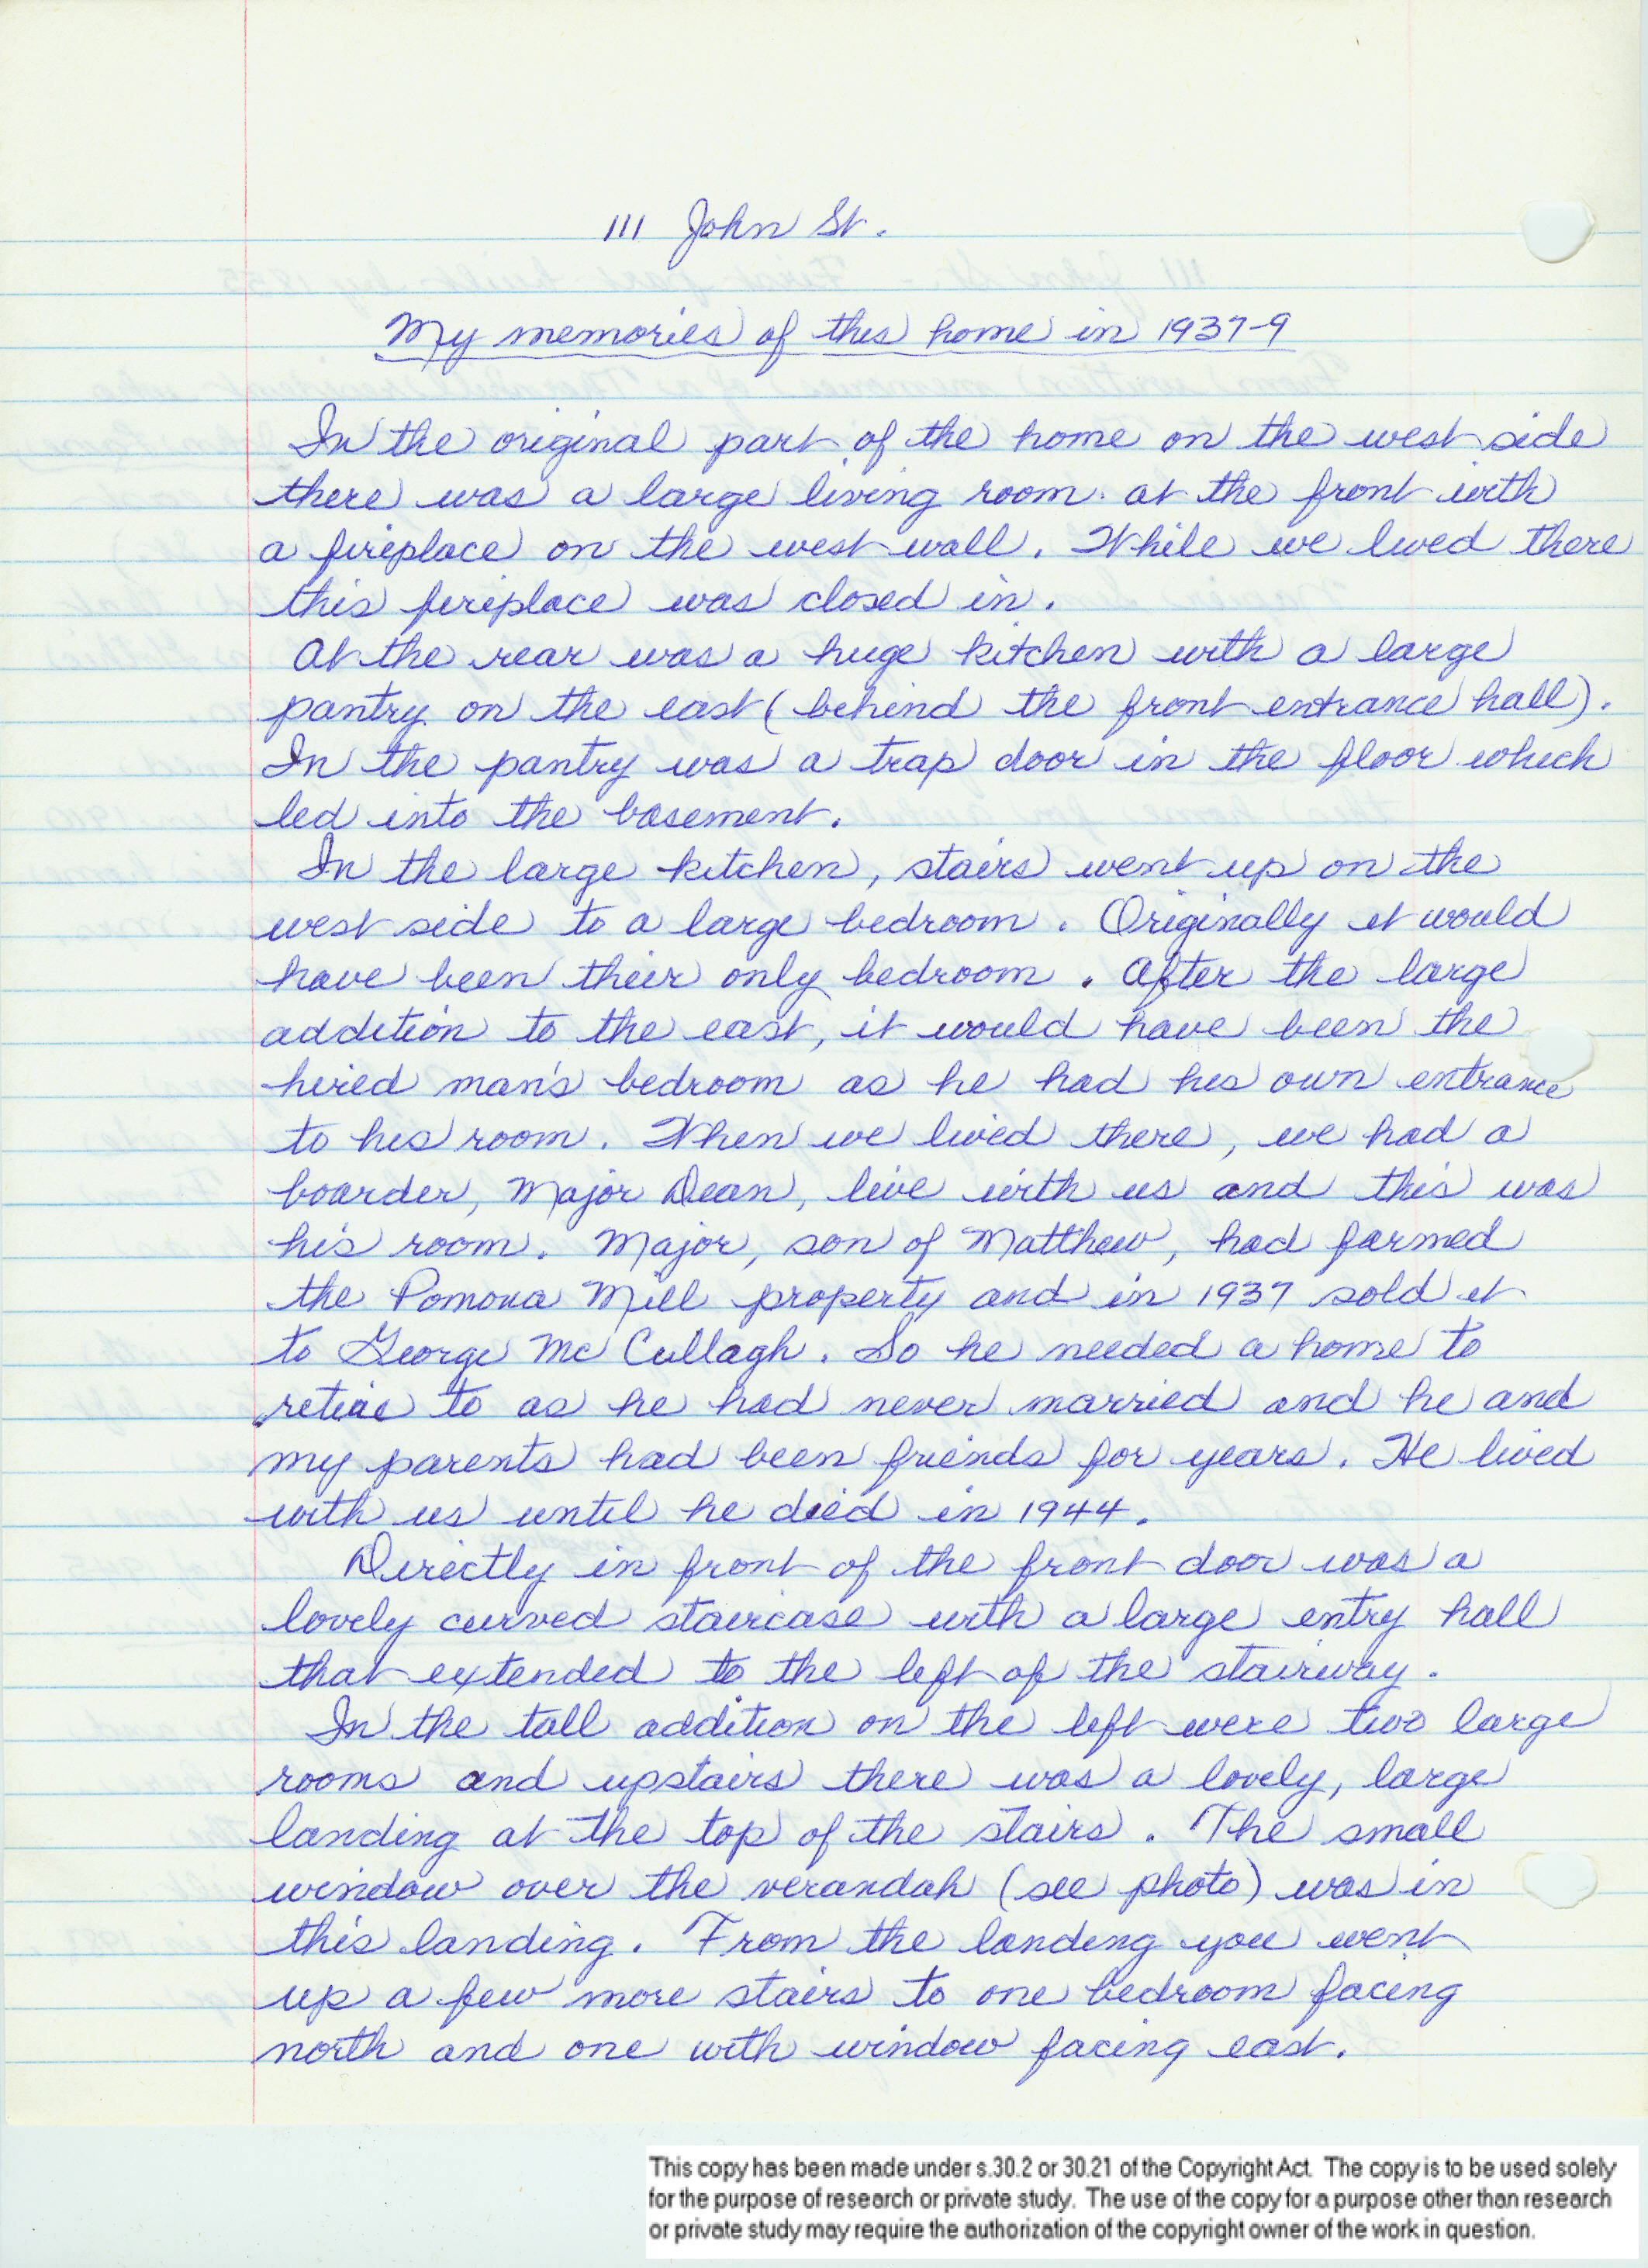 111 John St.
My memories of this home in 1937-9
In the original part of the home on the west side
there was a large living room at the front with
a fireplace on the west wall. While we lived there
this fireplace was closed in.
At the rear was a huge kitchen with a large
pantry on the east (behind the front entrance hall).
In the pantry was a trap door in the floor which
led into the basement.
In the large kitchen, stairs went up on the
west side to a large bedroom. Originally it would
have been their only bedroom. After the large
addition to the east, it would have been the
hired man's bedroom as he had his own entrance
to his room. When we lived there, we had a
boarder, Major Dean, live with us and this was
his room. Major, son of Matthew, had farmed
the Pomona Mill property and in 1937 sold it
to George Mc Cullagh. So he needed a home to
retire to as he had never married and he and
my parents had been friends for years. He lived
with us until he died in 1944.
Directly in front of the front door was a
lovely curved staircase with a large entry hall
that extended to the left of the stairway.
In the tall addition on the left were two large
rooms and upstairs there was a lovely, large
landing at the top of the stairs. The small
window over the verandah (see photo) was in
this landing. From the landing you went
up a few more stairs to one bedroom facing
north and one with window facing east.
This copy has been made under s.30.2 or 30.21 of the Copyright Act. The copy is to be used solely
for the purpose of research or private study. The use of the copy for a purpose other than research
or private study may require the authorization of the copyright owner of the work in question.